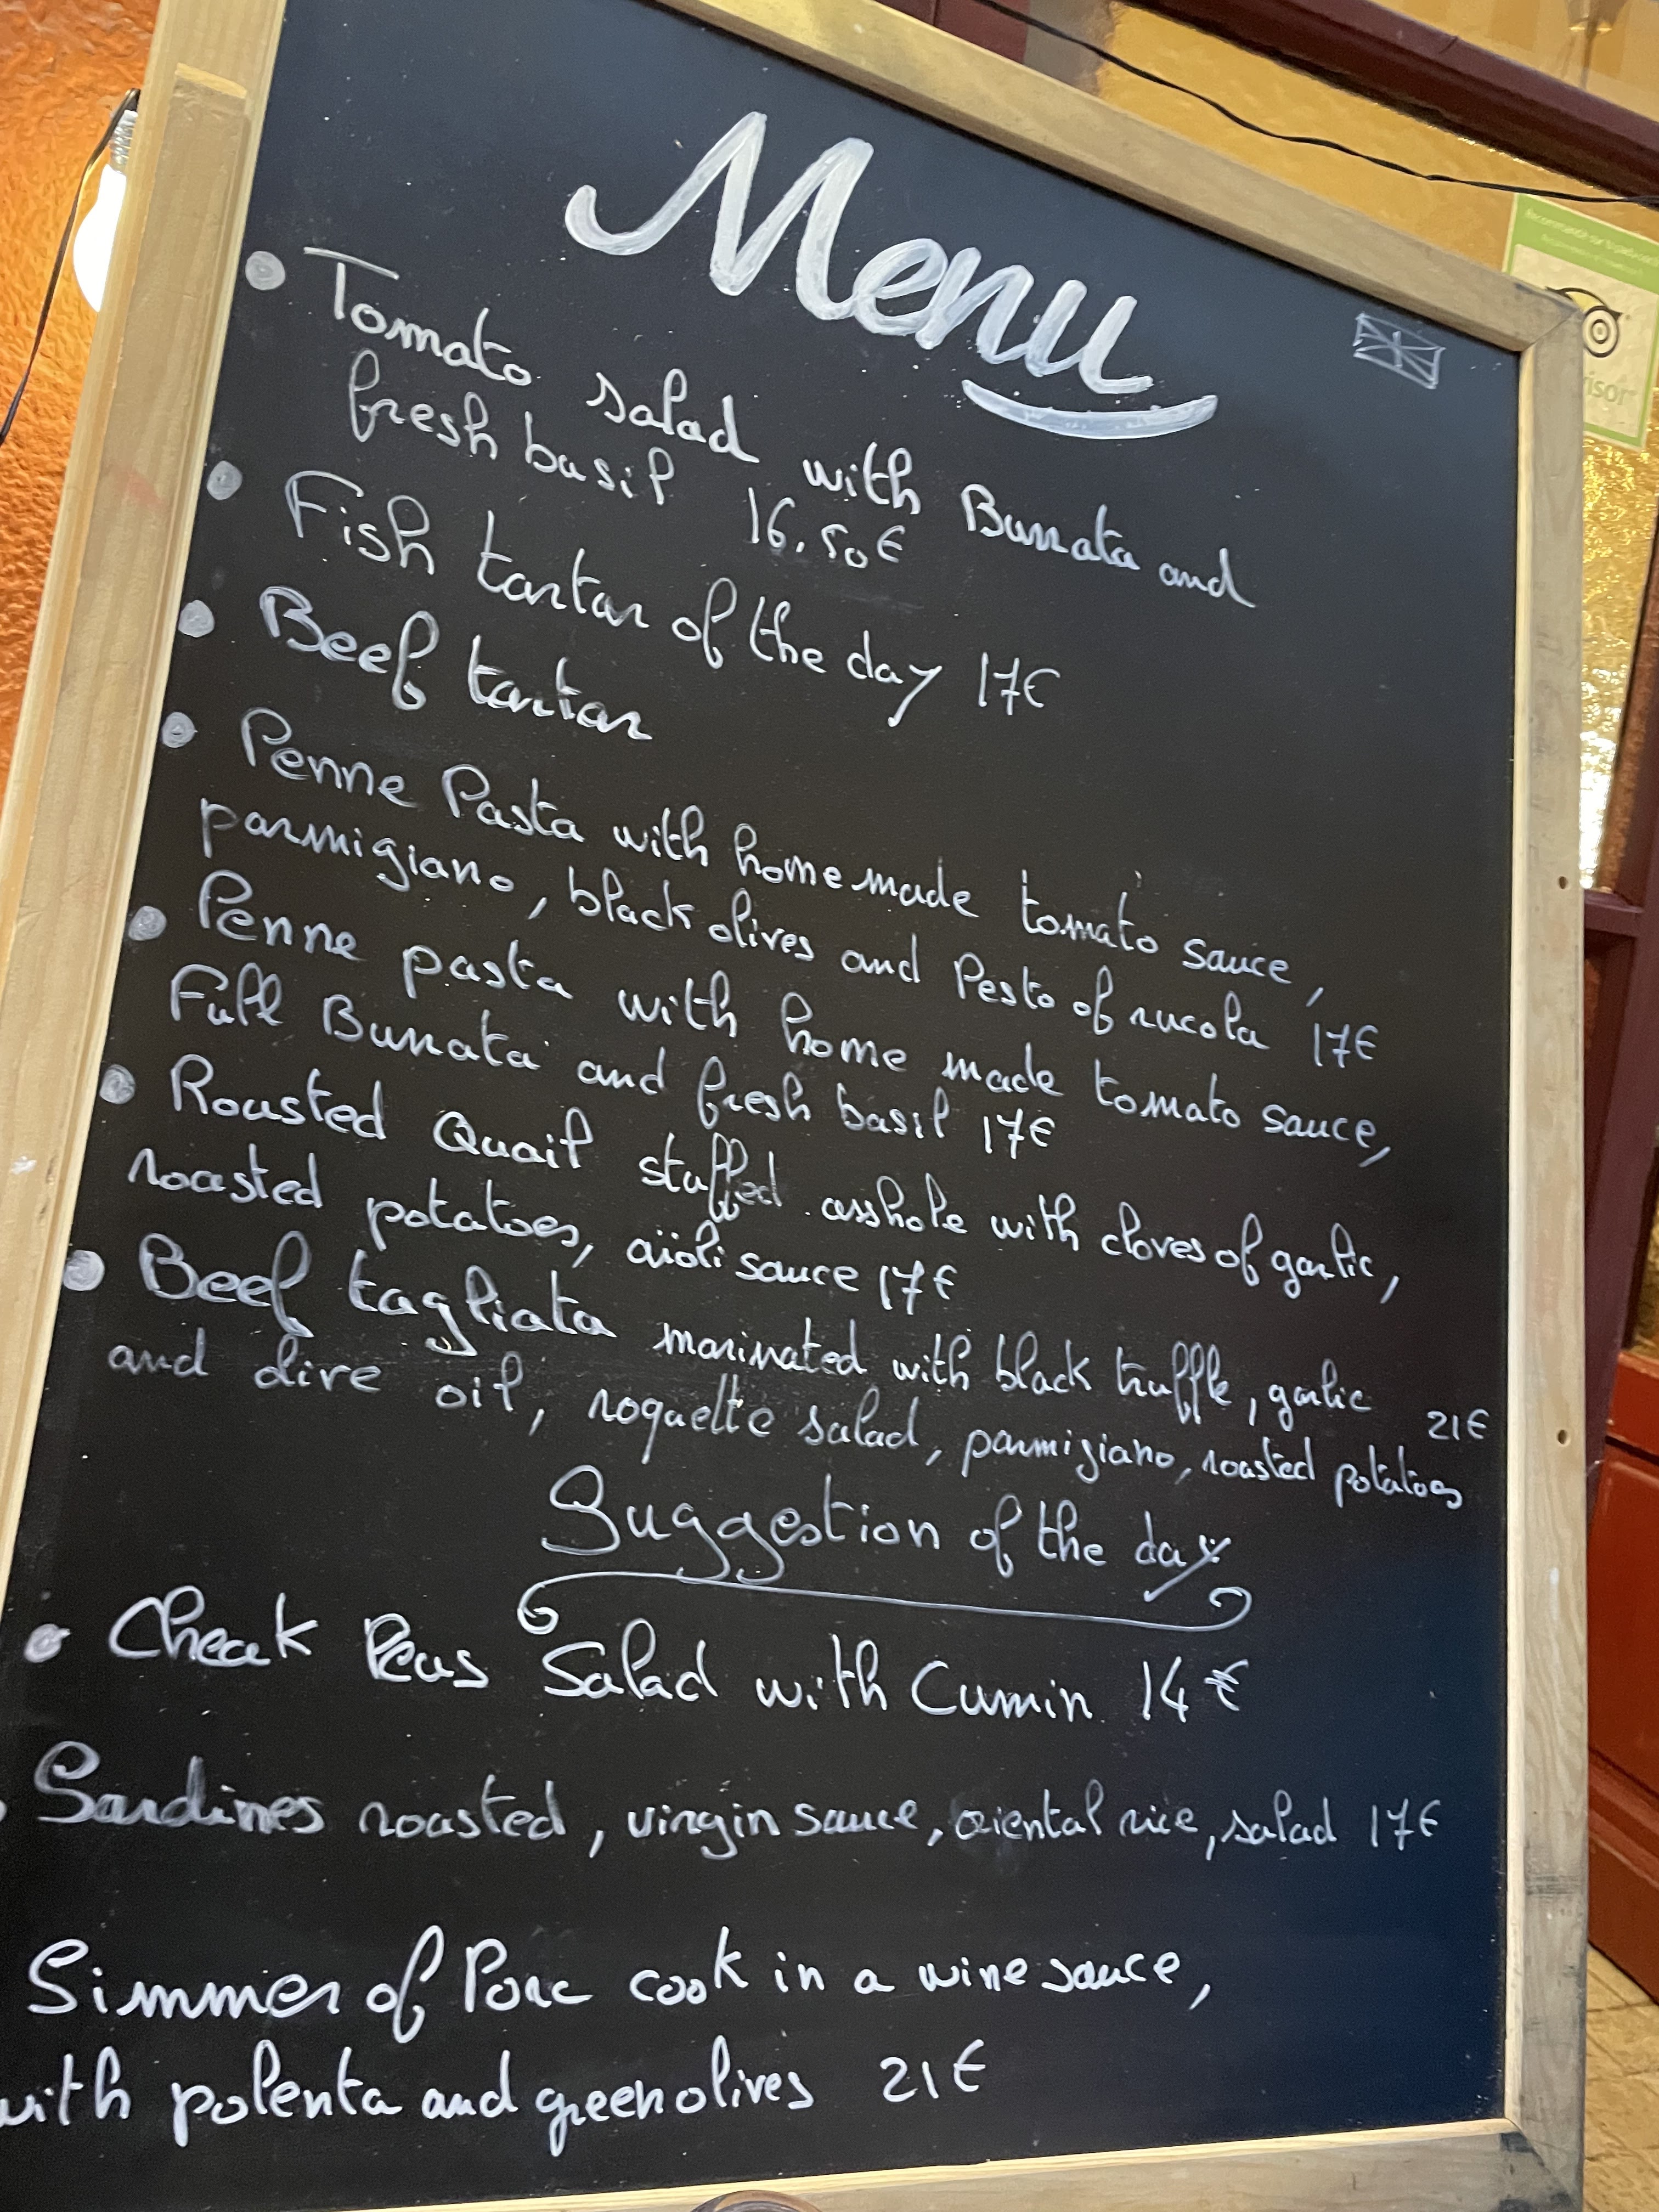 Menu
• Tomato salad with Burrata and
fresh basil 16.50€
• Fish tartar of the day 17€
• Beef tartar
• Penne Pasta with home made tomato sauce,
parmigiano, black olives and Pesto of rucola 17€
• Penne pasta with home made tomato sauce,
Full Burrata and fresh basil 17€
• Roasted Quail stuffed asshole with cloves of garlic,
roasted potatoes, aïoli sauce 17€
• Beef tagliata marinated with black truffle, garlic 21€
and olive oil, roquette salad, parmigiano, roasted potatoes
Suggestion of the day
• Cheak Peas Salad with Cumin 14€
Sardines roasted, virgin sauce, oriental rice, salad 17€
Simmer of Porc cook in a wine sauce,
with polenta and green olives 21€